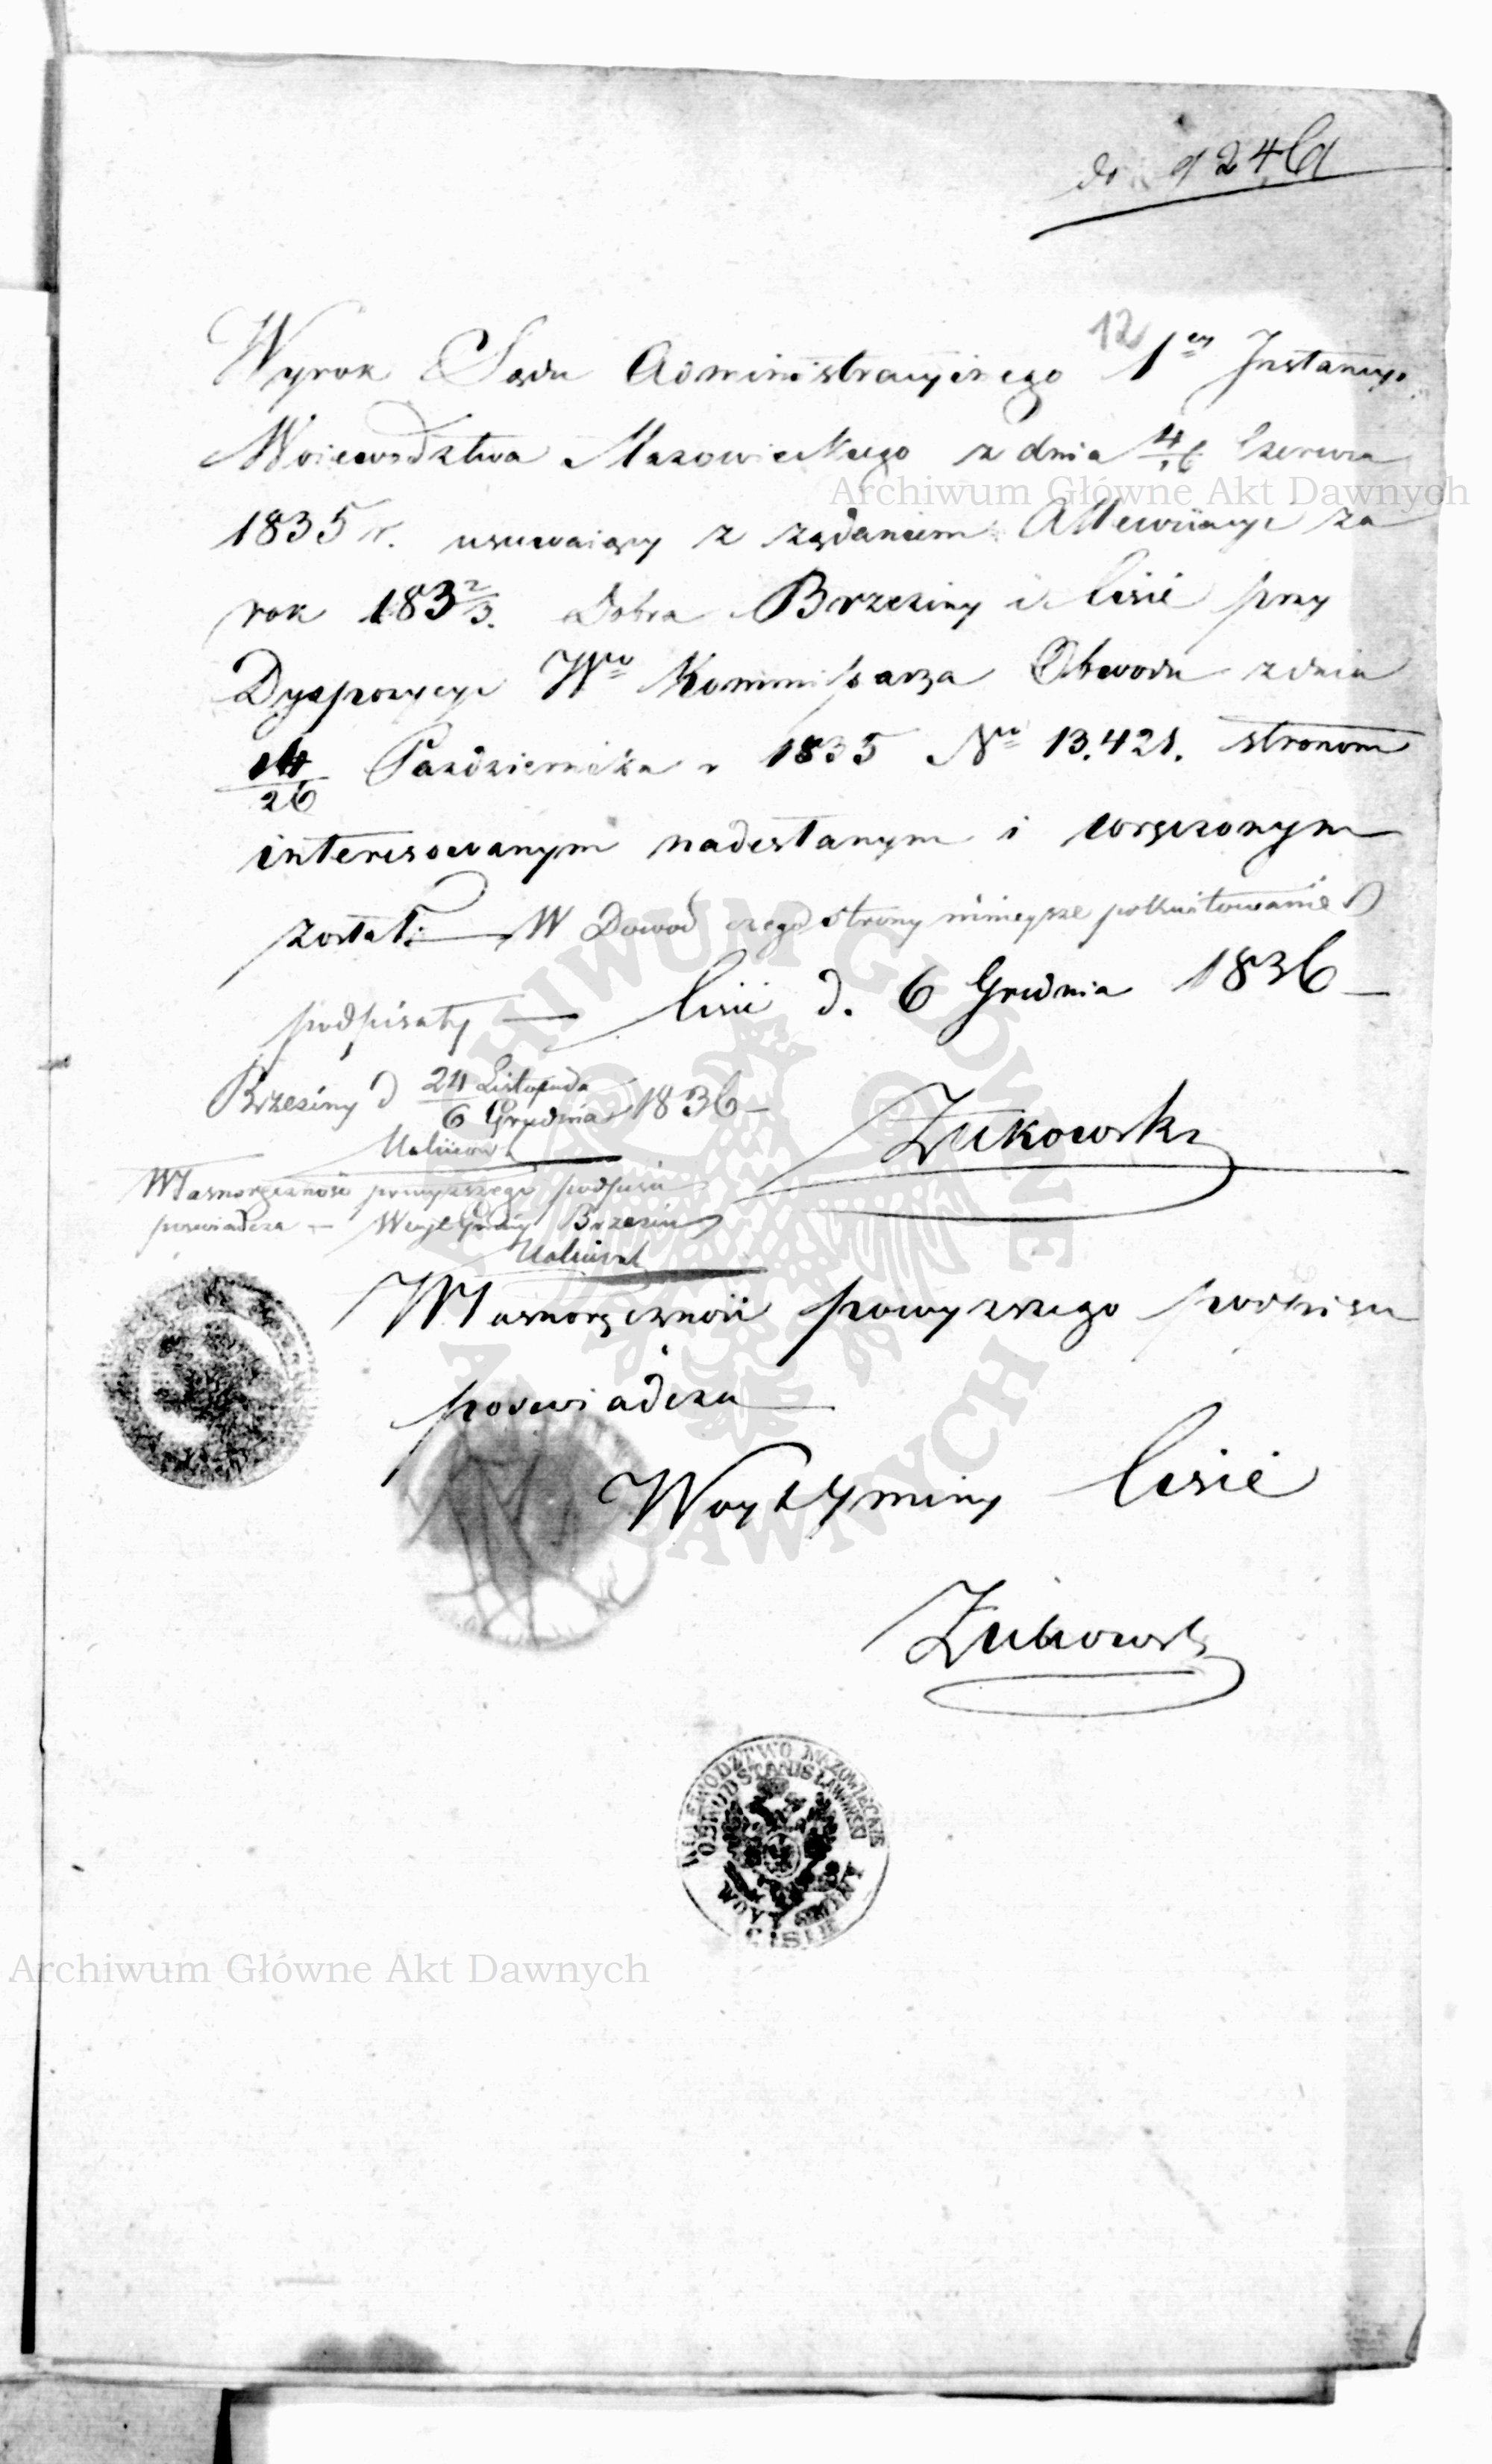 do 9246
12
Wyrok Sądu Administracyjnego 1ey Instancyi
Woiewodztwa Mazowieckiego z dnia 4/16 Czerwca
1835 r. usuwaiący z żądaniem Allewiiacyi za
rok 183 2/3. Dobra Brzeziny i Cisie przy
Dyspozycyi Wgo Kommissarza Obwodu z dnia
14/26 Pazdziernika r 1835 No 13.421. stronom
interesowanym nadesłanym i wręczonym
został. W Dowod czego strony ninieysze pokwitowanie
podpisały — Cisie d. 6 Grudnia 1836 —
Brzeziny d 24 Listopada / 6 Grudnia 1836 —
Żukowski
Własnoręczność powyzszego podpisu
poswiadcza — Woyt Gminy Brzeziny
Własnoręczność powyzszego podpisu
poswiadcza
Woyt Gminy Cisie
Żukowski
WOIEWODZTWO MAZOWIECKIE
OBWOD STANISŁAWOWSKI
WOYT GMINY
CISIE
Archiwum Główne Akt Dawnych
ARCHIWUM GŁÓWNE AKT DAWNYCH
Archiwum Główne Akt Dawnych